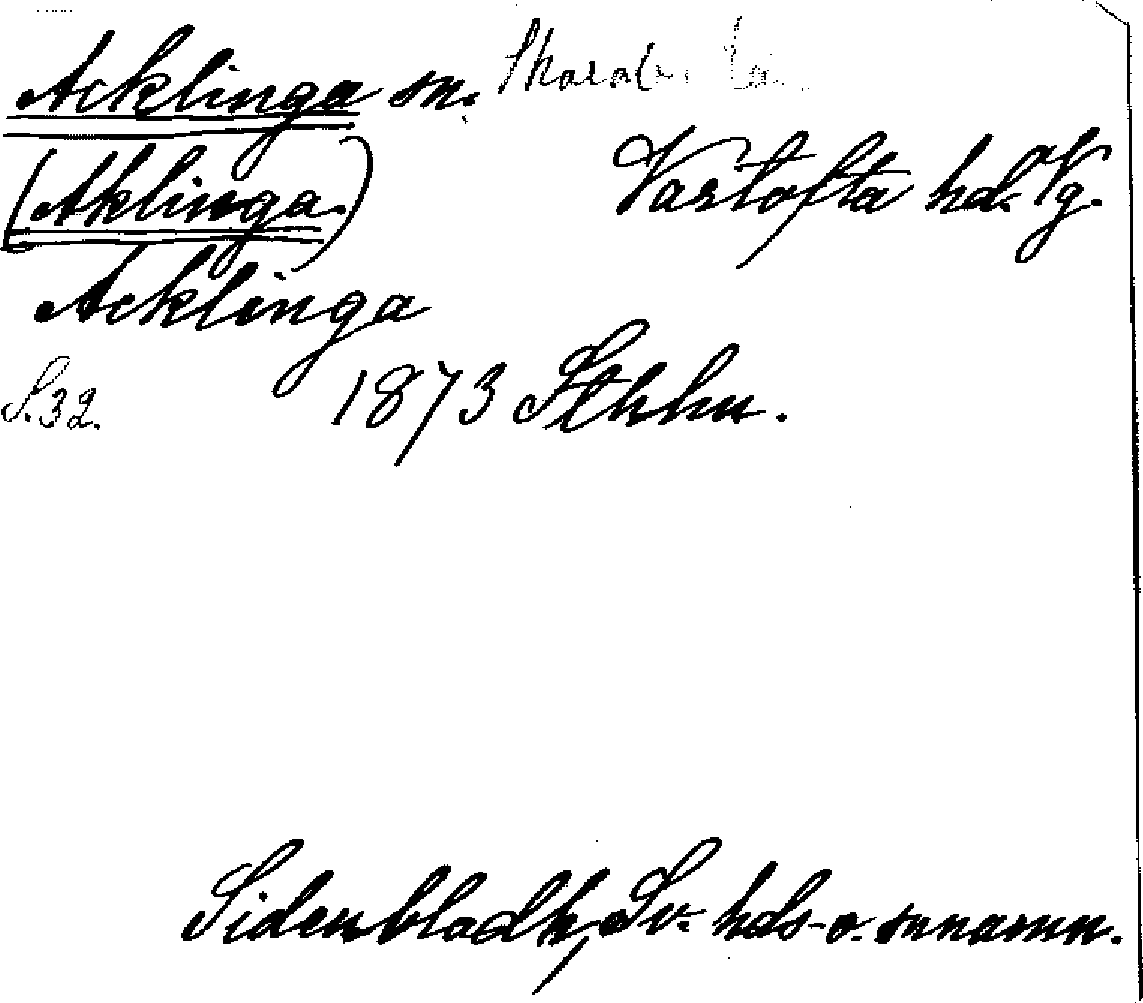 Acklinga sn. Skarab. Lä
(Aklinga.) Vartofta hd. Vg.
Acklinga
S.32. 1873 Sthhm.
Sidenbladh, Sv. hds- o. snnamn.